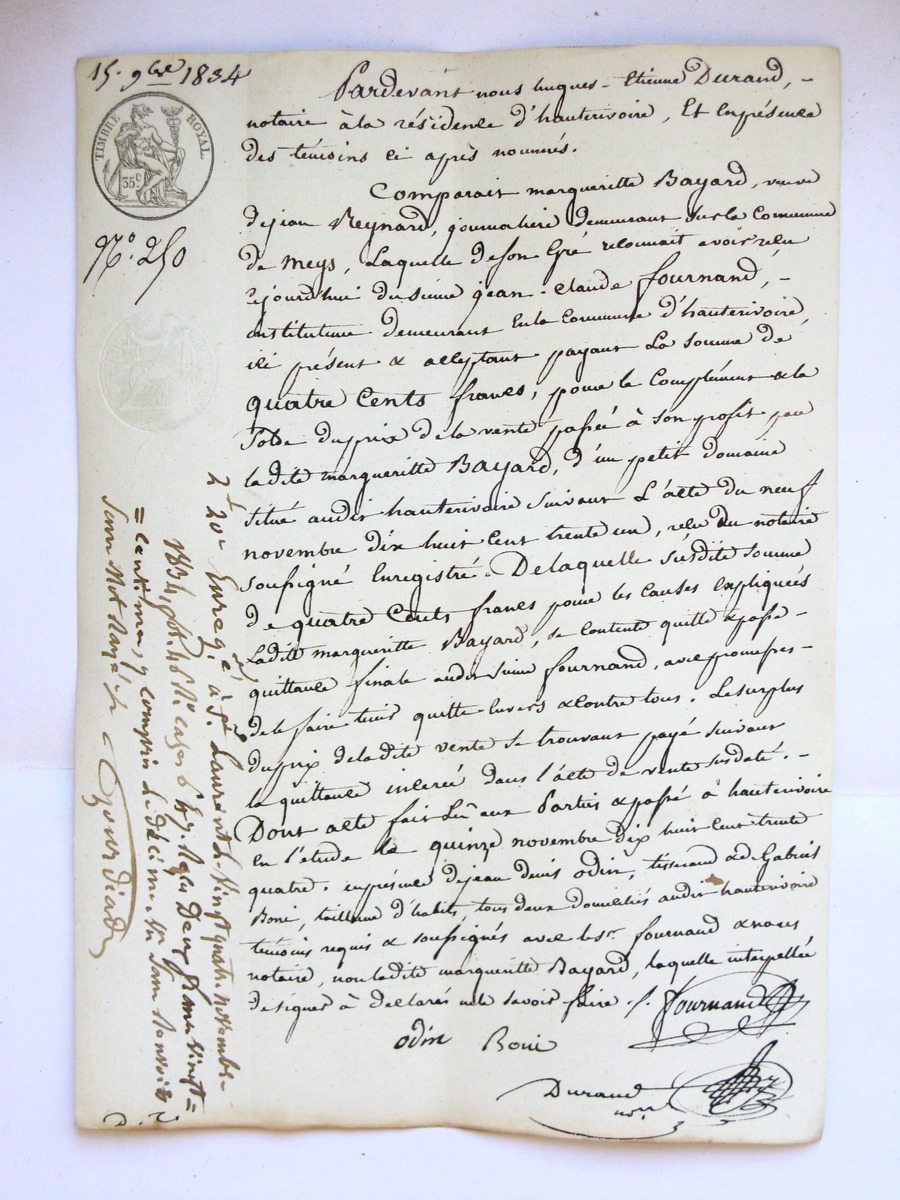 15. 9bre 1834
TIMBRE ROYAL
35 c
N.° 250
Pardevant nous hugues-Etienne Durand,-
notaire à la résidence d'hauterivoire, Et En présence
des témoins ci après nommés.
Comparait margueritte Bayard, veuve
de jean Reynard, journalière demeurant sur la Commune
de meys, Laquelle de son Gré reconnait avoir reçu
cejourdhui du sieur jean-claude fournand,-
instituteur demeurant En la Commune d'hauterivoire
ici présent & acceptant payant La somme de
quatre Cents francs, pour le Complément & la
Solde du prix de la vente passée à son profit par
ladite margueritte Bayard, d'un petit domaine
situé audit hauterivoire suivant L'acte du neuf
novembre dix huit Cent trente un, reçu du notaire
soussigné Enregistré. De laquelle susdite somme
de quatre Cents francs pour les causes Expliquées
Ladite marguerite Bayard, se contente quitte & passe-
quittance finale audit sieur fournand, avec promesses-
de le faire tenir quitte Envers & Contre tous. Le surplus
du prix de ladite vente se trouvant payé suivant
la quittance inserée dans l'acte de vente susdaté.-
Dont acte fait Lû aux Parties & passé à hauterivoire
En l'étude le quinze novembre dix huit Cent trente
quatre. en présence de jean denis odin, tisserand & de Gabriel
Boni, tailleur d'habits, tous deux domiciliés audit hauterivoire
temoins requis & soussignés avec le sr. fournand & nous
notaire, non ladite marguerite Bayard, laquelle interpellée
de signer à déclaré ne le savoir faire ./.
Fournand
odin Boni
Durand
nore
2t 20c Enreg.é à St. Laurent le vingt quatre novembre
1834, fol. 46 R° cases 6 & 7. Reçu Deux francs vingt=
=centimes, y compris le décime sur